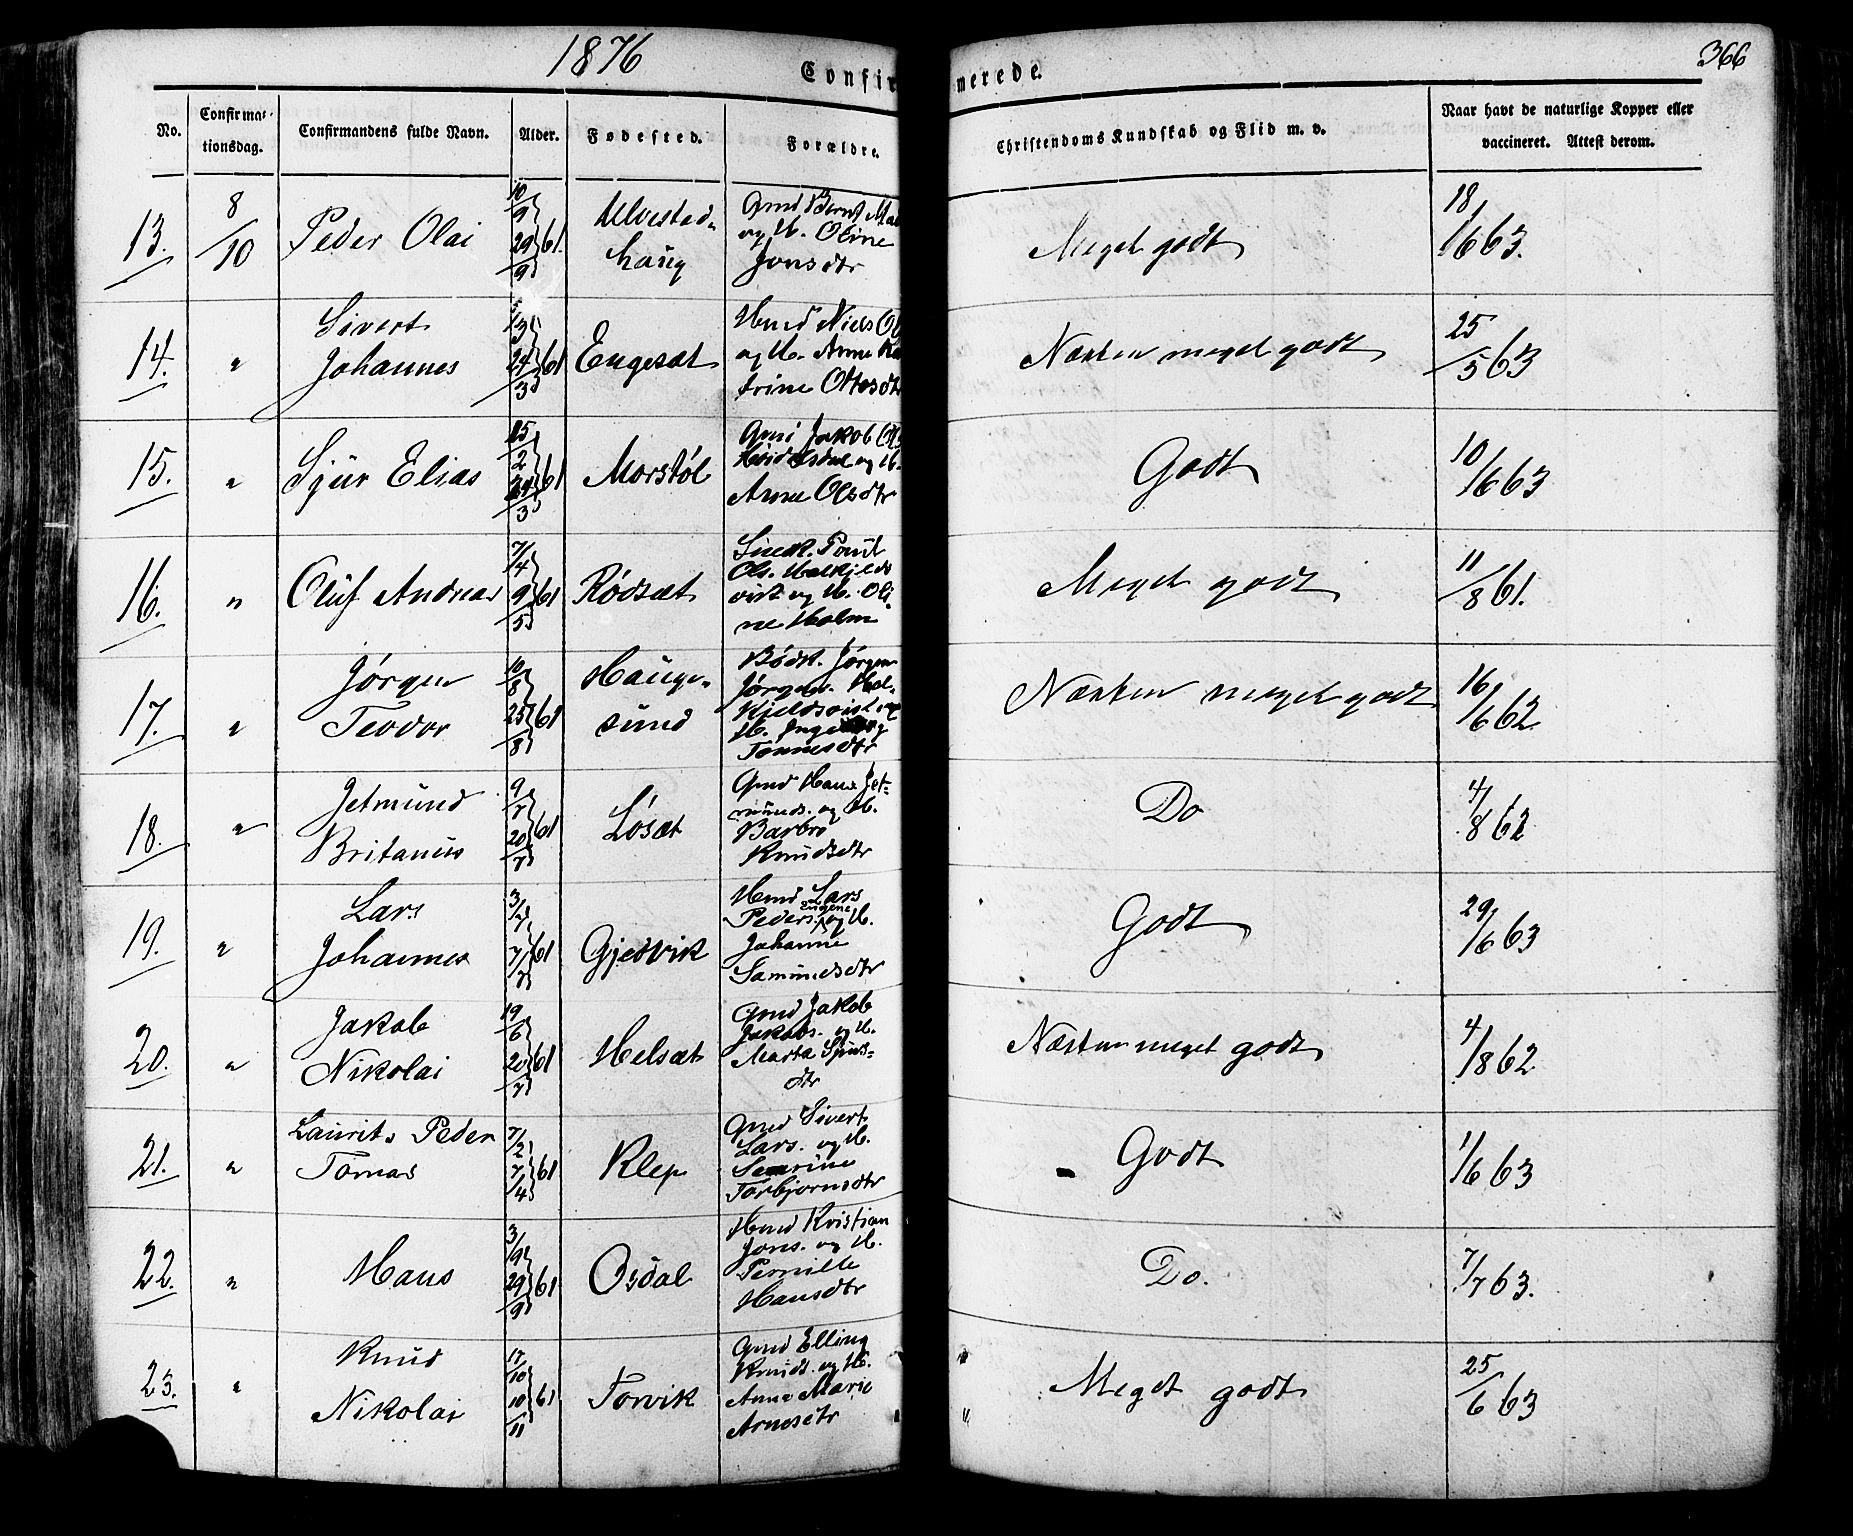 1876
366
Confirmerede.
No.
Confirmationsdag.
Confirmandens fulde Navn.
Alder.
Fødested.
Forældre.
Christendoms Kundskab og Flid m. v.
Naar havt de naturlige Kopper eller
vaccineret. Attest derom.
13. 8/10 Peder Olai 10/9 29/9 61. Ulvestad-
haug
Gmd Bernt
og H. Oline
Jonsdtr
Meget godt 18/6 63.
14. " Sivert
Johannes 24/3 61 Engesæt
Hmd Niels
og H. Anne Ka
trine Ottosdtr
Næsten meget godt 25/5 63
15. " Sjur Elias 61 Morstøl
Gmd Jakob
og H.
Anne Olsdtr
Godt 10/6 63
16. " Oluf Andreas 7/4 9/5 61 Rødsæt
Ols. Halkjelds
vik og H. Oli-
ne Holm
Meget godt 11/8 61.
17. " Jørgen
Teodor 10/8 25/8 61 Hauge-
sund
Bødk. Jørgen
Jørgen. Hal-
Kjeldsvik og
H. Ingeborg
Tønnesdtr
Næsten meget godt 16/6 62
18. " Jetmund
Britanus 9/7 20/7 61 Løsæt
Gmd Hans Jet-
munds. og H.
Barbro
Knudsdtr
Do 4/8 62
19. " Lars
Johannes 3/7 7/7 61 Gjedvik
Hmd Lars
Peders. Eugene og H.
Johanne
Samundsdtr
Godt 29/6 63
20. " Jakob
Nikolai 19/6 20/7 61 Helsæt
Gmd Jakob
Jakobs. og H.
Marta Sjurs-
dtr
Næsten meget godt 4/8 62
21. " Laurits Peder
Tomas 7/2 7/4 61 Klep
Gmd Sivert
Lars. og H.
Severine
Torbjørnsdtr
Godt 1/6 63
22. " Hans 3/9 29/9 61 Osdal
Hmd Kristian
Jons. og H.
Pernille
Hansdtr
Do. 7/7 63.
23. " Knud
Nikolai 17/10 10/11 61 Torvik
Gmd Elling
Knuds. og H.
Anne Marie
Arnesdtr
Meget godt 25/6 63